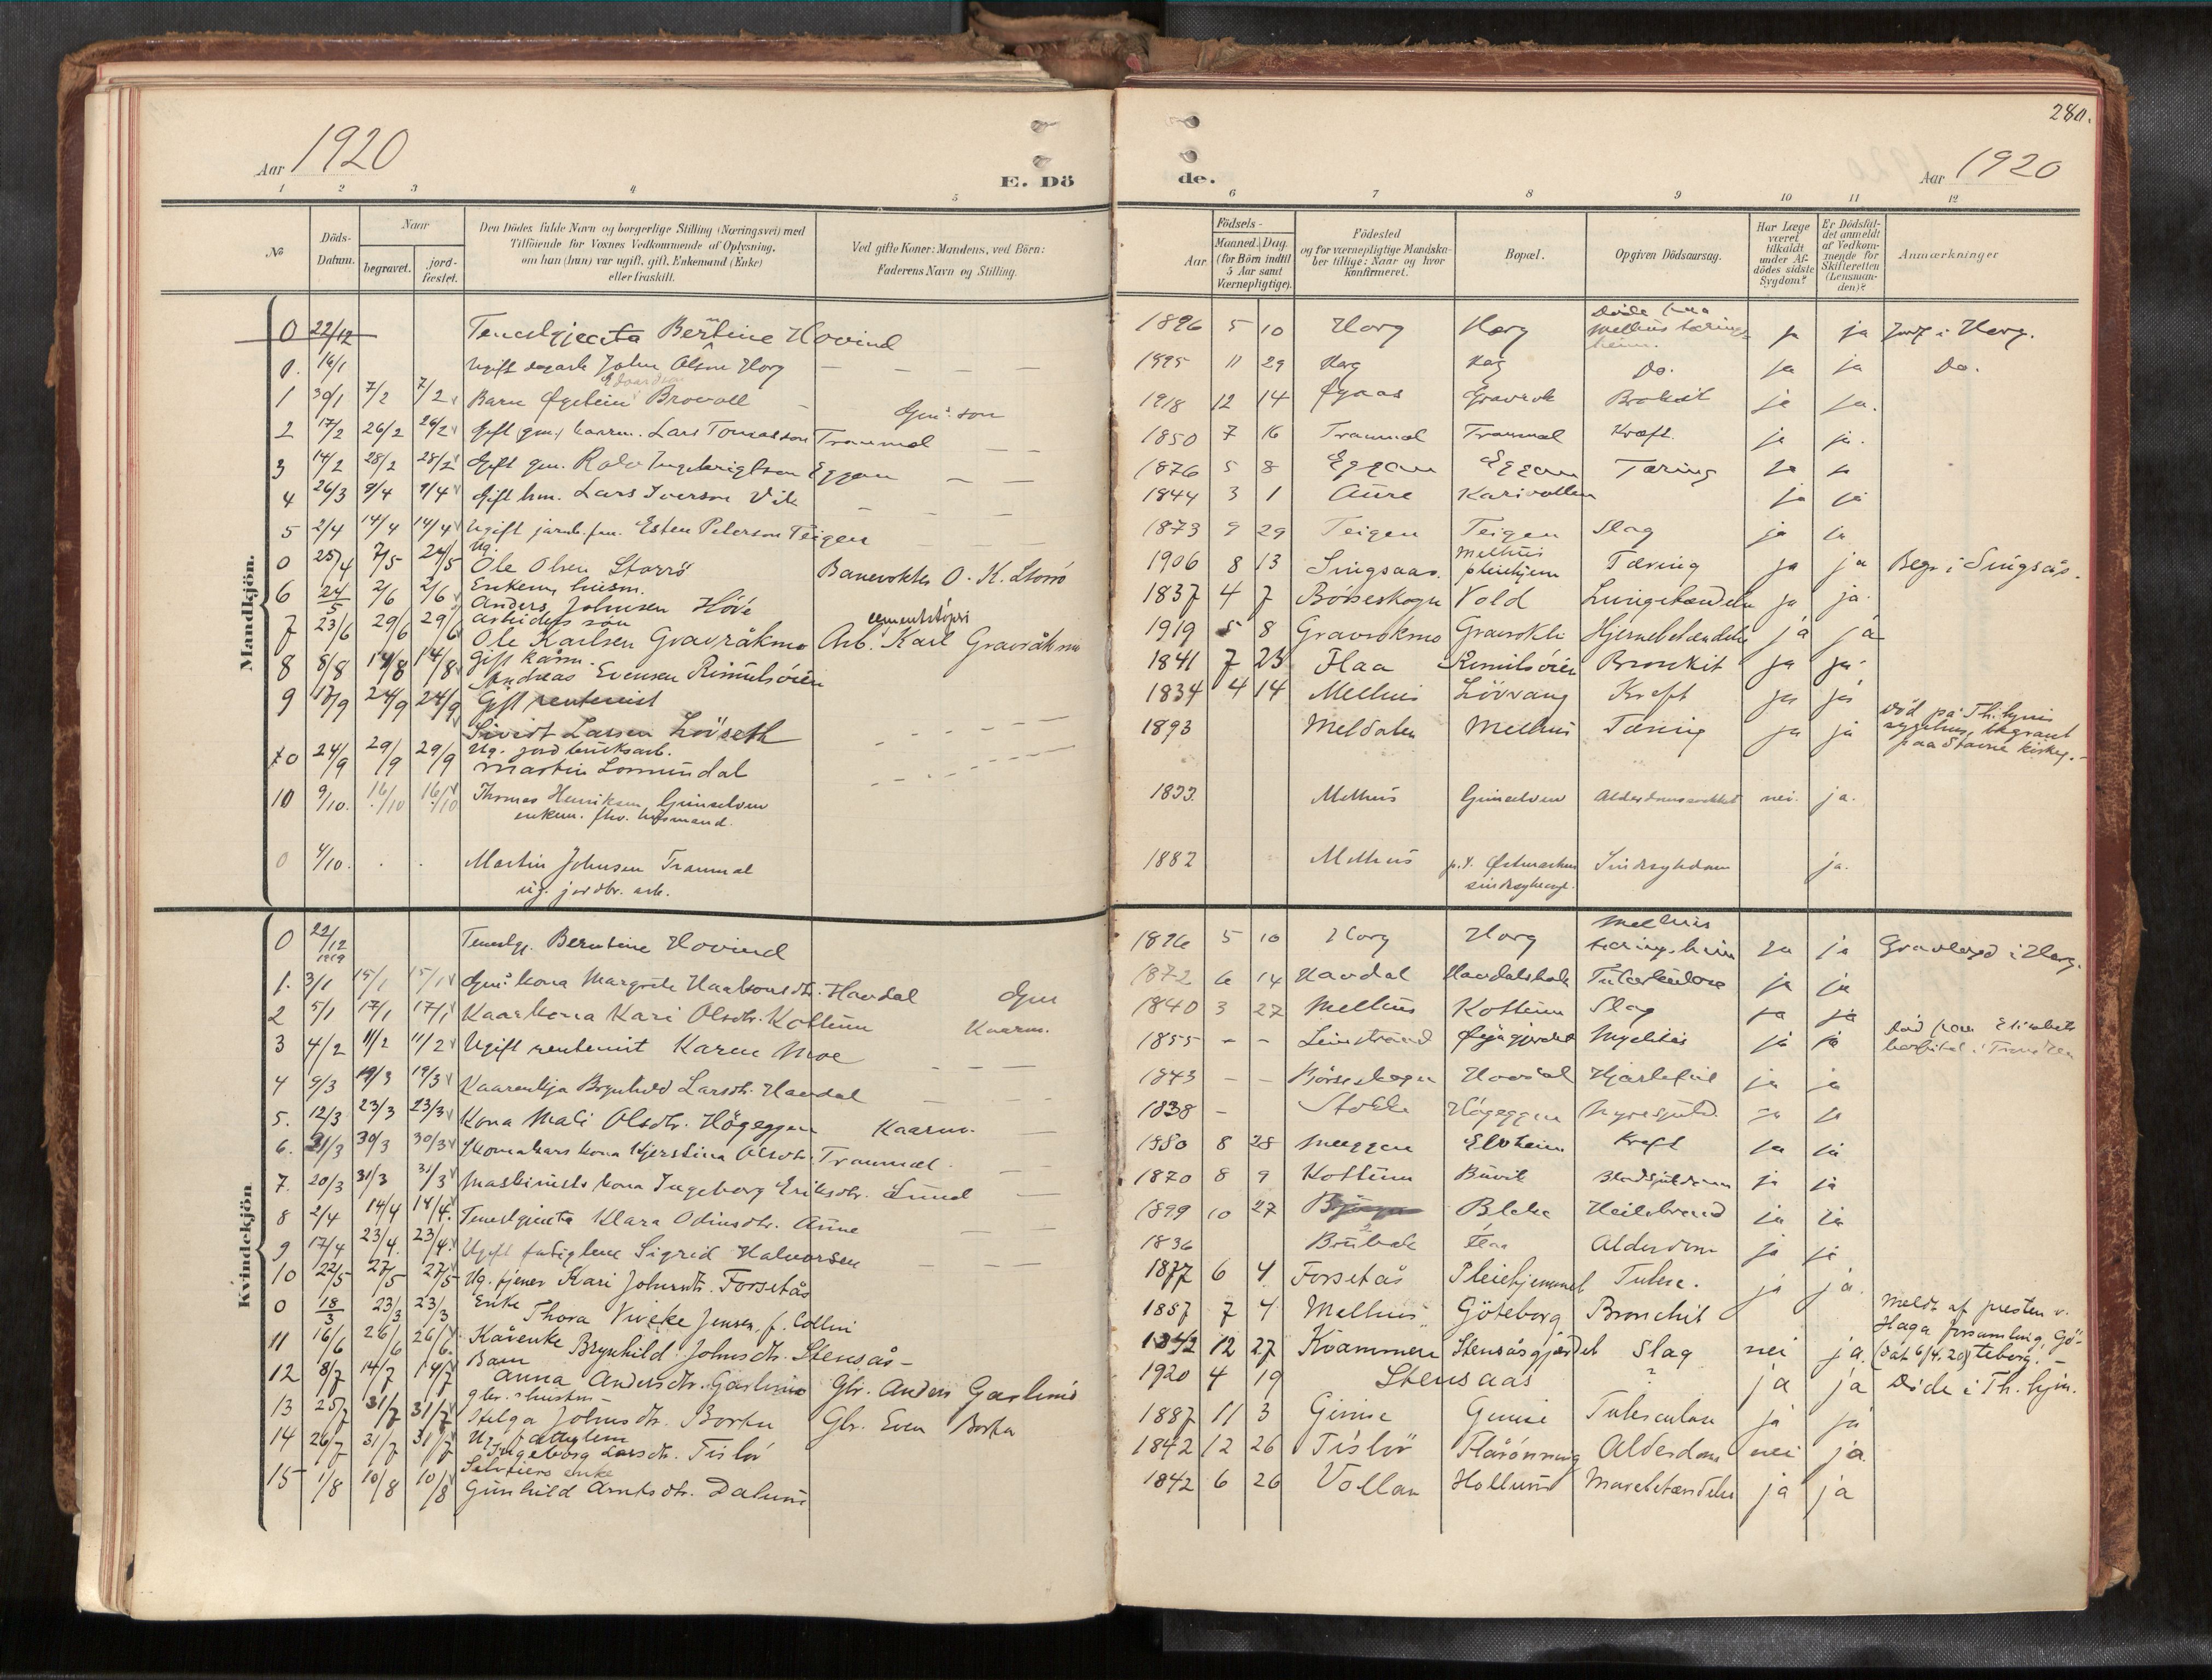 280.
Aar 1920
E. Dö
de.
Aar 1920
1 2 3 4 5
6 7 8 9 10 11 12
No
Döds-Datum.
Naar
begravet.
jord-fæstet.
Den Dödes fulde Navn og borgerlige Stilling (Næringsvei) med
Tilföiende for Voxnes Vedkommende af Oplysning,
om han (hun) var ugift, gift, Enkemand (Enke)
eller fraskilt.
Ved gifte Koner: Mandens, ved Börn:
Faderens Navn og Stilling.
Födsels-
Aar.
Maaned. Dag.
(for Börn indtil
5 Aar samt
Værnepligtige).
Födested
og for værnepligtige Mandska-
ber tillige: Naar og hvor
konfirmeret.
Bopæl.
Opgiven Dödsaarsag.
Har Læge
været
tilkaldt
under Af-
dödes sidste
Sygdom?
Er Dödsfal-
det anmeldt
af Vedkom-
mende for
Skifteretten
(Lensman-
den)?
Anmærkninger
Mandkjön.
0 22/12 Bertine Hovind 1896 5 10 Horg Horg ja ja i Horg.
0. 16/1 Ugift John Olsen Horg 1895 11 29 Horg Do. ja ja Do.
1 30/1 7/2 7/2 Barn Øystein Brovoll son 1918 12 14 Øyaas Gravrok Bronkit ja ja.
2 17/2 26/2 26/2 Gift kaarm. Lars Tomasson Tranmæl 1850 7 16 Tranmæl Tranmæl Kræft. ja ja.
3 14/2 28/2 28/2 Gift gm. Ingebrigtson Eggen 1876 5 8 Eggen Eggen Tæring ja ja
4 26/3 9/4 9/4 Gift hm. Lars Iverson Vik 1844 3 1 Aure Karivollen ja ja
5 2/4 14/4 14/4 Ugift Esten Peterson Teigen 1873 9 29 Teigen Teigen Slag ja ja
0 25/4 7/5 24/5 Ug.
Ole Olsen Storrö Banevokter O. K. Storrö 1906 8 13 Singsaas. Melhus pleiehjem Tæring ja ja Begr. i Singsås.
6 24/5 2/6 2/6 Enkem. husm.
Anders Johnsen Hövé 1837 4 7 Börseskogn Vold Lungebetændelse ja ja
7 23/6 29/6 29/6 Arbeiders sön
Ole Karlsen Gravråkmo Arb. Karl Gravråkmo 1919 5 8 Gravrokmo Hjernebetændelse ja ja
8 8/8 14/8 14/8 Gift kårm.
Andreas Evensen Rimulsöien 1841 7 23 Flaa Rimulsöien Bronkit ja ja
9 17/9 24/9 24/9 Gift rentenist
Sivert Larsen Lövseth 1834 4 14 Melhus Lövvang Kreft ja ja
0 24/9 29/9 29/9 Ug. jordbruksarb.
Martin Lomundal 1893 Meldalen Melhus Tæring ja ja
död på Th.hjems
sygehus, begravet
paa Stavne kirkeg.
10 9/10. 16/10 16/10 Thomas Henriksen Gimselven
enkem. fhv. husmand. 1833. Melhus Gimselven nei. ja.
0 4/10. Martin Johnsen Tranmæl
ug. jordbr. arb. 1882 Melhus p.t. Østmarken sindssykeasyl. Sindssykdom ja.
Kvindekjön
0 22/12 1919 Berntine Hovind 1896 5 10 Horg Horg Melhus tæring.heim ja ja Gravlagd i Horg.
1. 3/1 15/1 15/1 kona Margrete Haakonsdtr. Havdal Gm 1872 6 14 Havdal Tuberkulose ja ja
2 5/1 17/1 17/1 Kaarkona Kari Olsdtr. Kottum Kaarm. 1840 3 27 Melhus Kottum Slag ja ja
3 4/2 11/2 11/2 Ugift rentenist Karen Moe 1855 – – Leinstrand ja ja
Död paa Elisabeth
hospital i Trondhjem
4 9/3 19/3 19/3 Kaarenkja Brynhild Larsdtr. Havdal 1843 – – Börseskogn Havdal Hjartefeil ja ja
5. 12/3 23/3 23/3 Kona Mali Olsdtr. Högeggen Kaarm. 1838 – Stokke Högeggen ja ja
6. 21/3 30/3 30/3 kona Kjerstina Olsdtr. Tranmæl 1880 8 28 Kreft ja ja
7. 20/3 31/3 31/3 Maskinists kona Ingeborg Eriksdtr. Lund 1870 8 9 Kottum Buvik ja ja
8 2/4 14/4 14/4. Tenestgjenta Klara Odinsdtr. Aune 1899 10 27 ja ja
9 17/4 23/4. 23/4. Ugift Sigrid Halvorsen 1836 Alderdom ja ja
10 22/5 27/5 27/5 Ug. tjener Kari Johnsdtr. Forsetås 1877 6 4 Forsetås Pleiehjemmet Tuberc. ja ja.
0 18/3 23/3 23/3 Enke
Thora Viveke Jensen, f. Collin 1857 7 4 Melhus Göteborg Bronchit
Meldt af presten v.
Haga forsamling, Gö-
teborg. (dat. 6/4.20)
11 16/6 26/6 26/6 Kårenke Brynhild Johnsdtr. Stensås – 1842 12 27 Kvammen Stensåsgjærdet Slag nei ja.
12 8/7 14/7 14/7 Barn
Anna Andersdtr. Garlimo Gbr. Anders Garlimo 1920 4 19 Stensaas ? ja ja Döde i Th.hjm.
13 25/7 31/7 31/7 gbr.s hustru
Helga Johnsdtr. Borten Gbr. Even Borten 1887 11 3 Gimse Gimse Tuberculose ja ja
14 26/7 31/7 31/7 Ug. fattiglem
Ingeborg Larsdtr. Tislöv 1842 12 26 Tislöv Flårönning Alderdom nei ja.
15 1/8 10/8 10/8 Selveiers enke
Gunhild Arntsdtr. Dalum 1842 6 26 Vollan Hollum Mavebetændelse ja ja